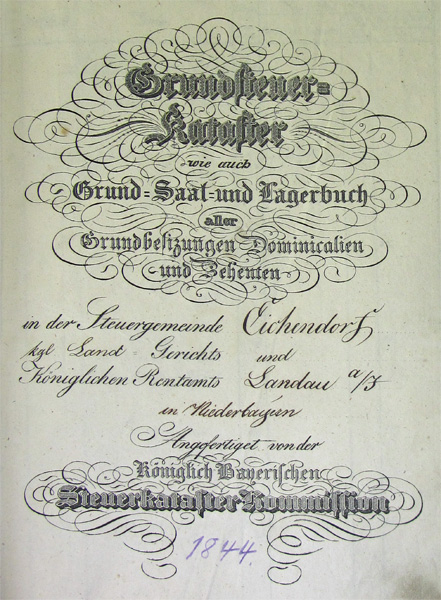 Grundsteuer=
Kataster
wie auch
Grund=Saal=und Lagerbuch
aller
Grundbesizungen Dominicalien
und Zehenten
in der Steuergemeinde Eichendorf
kgl Land Gerichts und
Königlichen Rentamts Landau a/I
in Niederbayern
Angefertiget von der
Königlich Bayerischen
Steuerkataster-Kommission
1844.